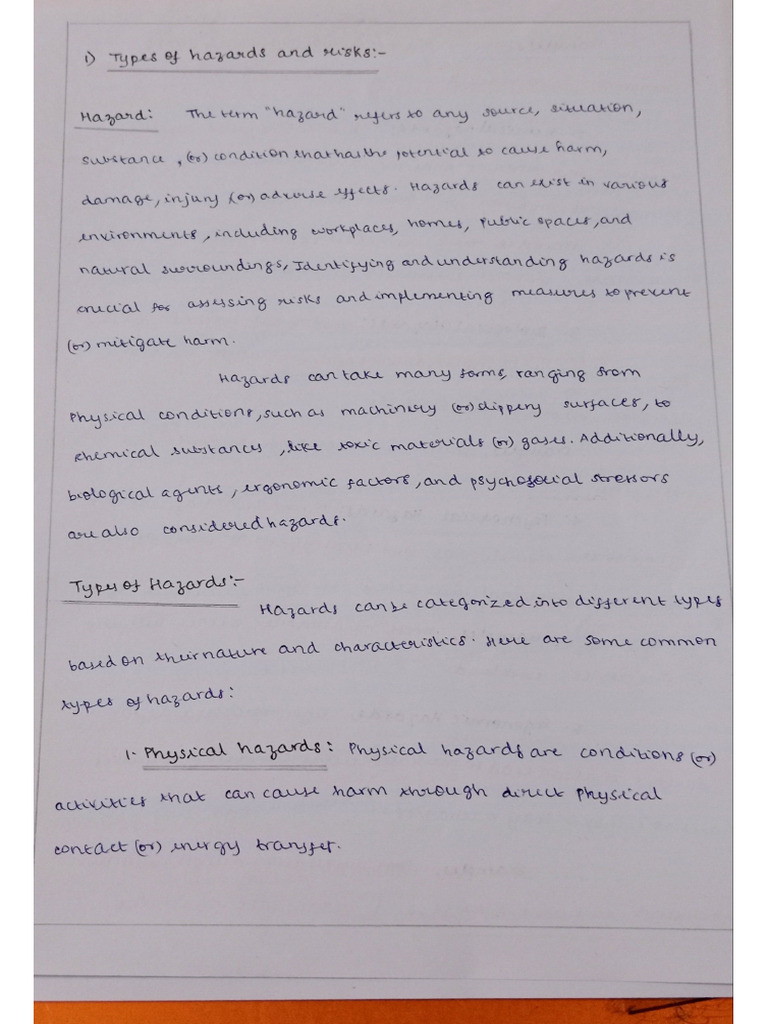 1) Types of hazards and risks:-
Hazard: The term "hazard" refers to any source, situation,
substance, (or) condition that has the potential to cause harm,
damage, injury (or) adverse effects. Hazards can exist in various
environments, including workplaces, homes, public spaces, and
natural surroundings, Identifying and understanding hazards is
crucial for assessing risks and implementing measures to prevent
(or) mitigate harm.
Hazards can take many forms, ranging from
Physical conditions, such as machinery (or) slippery surfaces, to
chemical substances, like toxic materials (or) gases. Additionally,
biological agents, ergonomic factors, and psychosocial stressors
are also considered hazards.
Types of Hazards:-
Hazards can be categorized into different types
based on their nature and characteristics. Here are some common
types of hazards:
1. Physical hazards: Physical hazards are conditions (or)
activities that can cause harm through direct physical
contact (or) energy transfer.